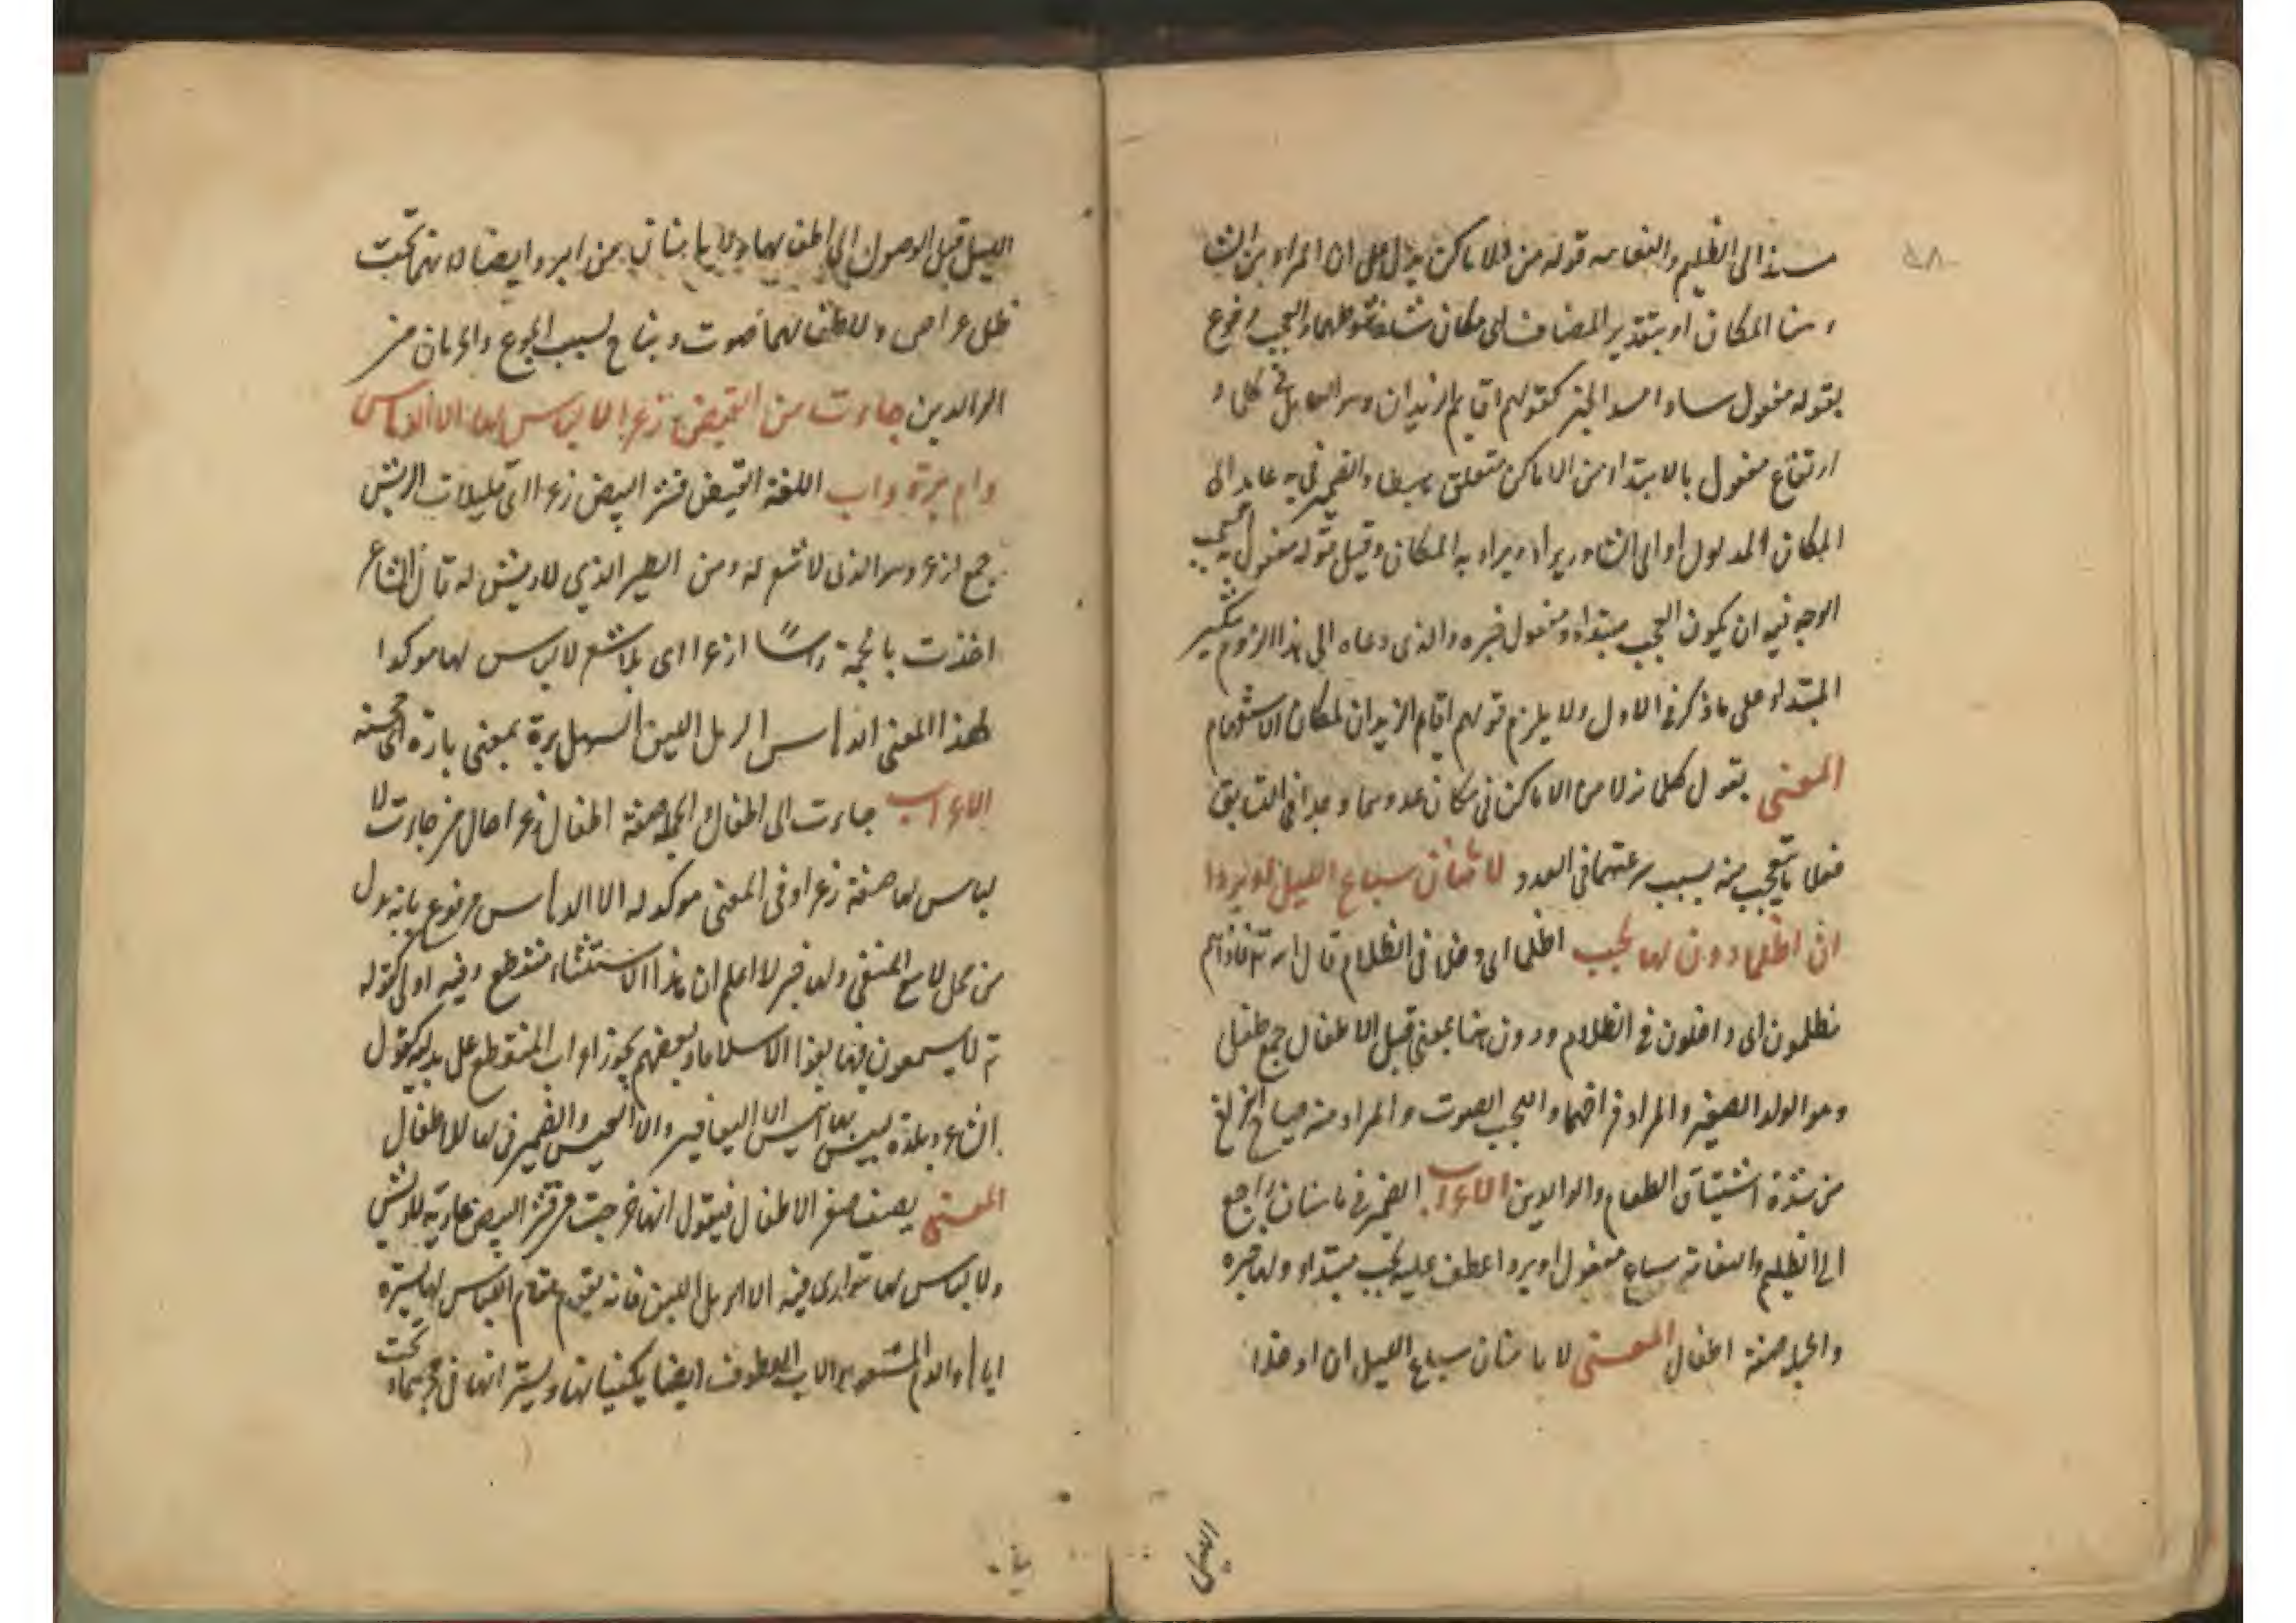 ٤٨
الى الظليم والنعامة قوله من الاماكن يدل على ان المراد من
المكان او بتقدير المضاف اى مكان والعجب مرفوع
بقوله مفعول ساد مسد الخبر كقولهم اقايم الزيدان
ارتفاع مفعول بالابتداء من الاماكن متعلق والضمير فى به عايد الى
المكان المدلول او الى ويراد به المكان وقيل قوله مفعول به
الوجه فيه ان يكون العجب مبتداء ومفعول خبره والذى دعاه الى هذا لزوم تنكير
المبتداء على ما ذكر فى الاول ولا يلزم قولهم اقايم الزيدان لمكان الاستفهام
المعنى يقول كلما نزلا من الاماكن فى مكان
فعلا ما يتعجب منه بسبب سرعتهما فى العدو لا يأمنان سباع الليل او بردا
ان اظلما دون اطفال لها لجب اظلما اى دخلا فى الظلام قال الله تع فاذا هم
مظلمون اى داخلون فى الظلام ودون هنا بمعنى قبل الاطفال جمع طفل
وهو الولد الصغير والمراد فراخهما واللجب الصوت والمراد منه صياح
من شدة اشتياق الطعام والوالدين الاعراب الضمير فى يأمنان راجع
الى الظليم والنعامة سباع مفعول او بردا عطف عليه لجب مبتداء ولها خبره
والجملة صفة اطفال المعنى لا يأمنان سباع الليل ان
الليل
الليل قبل الوصول الى اطفالهما ولا يأمنان من البرد وايضا
ولاطفالهما صوت بسبب الجوع والحرمان من
الوالدين جاءت من القيض زعرا لا لباس لها الا الدهاس
وام برة واب اللغة القيض قشر البيض زعرا اى قليلات الريش
جمع ازعر وهو الذى لا شعر له ومن الطير الذي لا ريش له قال الشاعر
اخذت بالجمة راسا ازعرا اى بلا شعر لا لباس لها موكد
لهذا المعنى الدهاس الرمل اللين السهل برة بمعنى بارة اى محسنة
الاعراب جاءت اى اطفال والجملة صفة اطفال زعرا حال من جاءت لا
لباس لها صفة زعرا وفى المعنى موكد له الا الدهاس مرفوع بانه بدل
من محل لا مع المنفى ولها خبر لا اعلم ان هذا الاستثناء منقطع وفيه كقوله
تع لا يسمعون فيها لغوا الا سلاما وبعضهم يجوز اعراب المنقطع على بدليته كقول
الشاعر وبلدة ليس بها انيس الا اليعافير والا العيس والضمير فى لها للاطفال
المعنى يصف صغر الاطفال فيقول انها خرجت من قشر البيض عارية بلا ريش
ولا لباس لها تتوارى فيه الا الرمل اللين فانه يقوم مقام اللباس لها يستره
اياها والام المشفقه والاب العطوف ايضا يكفيانها ويستر انها فى تحت